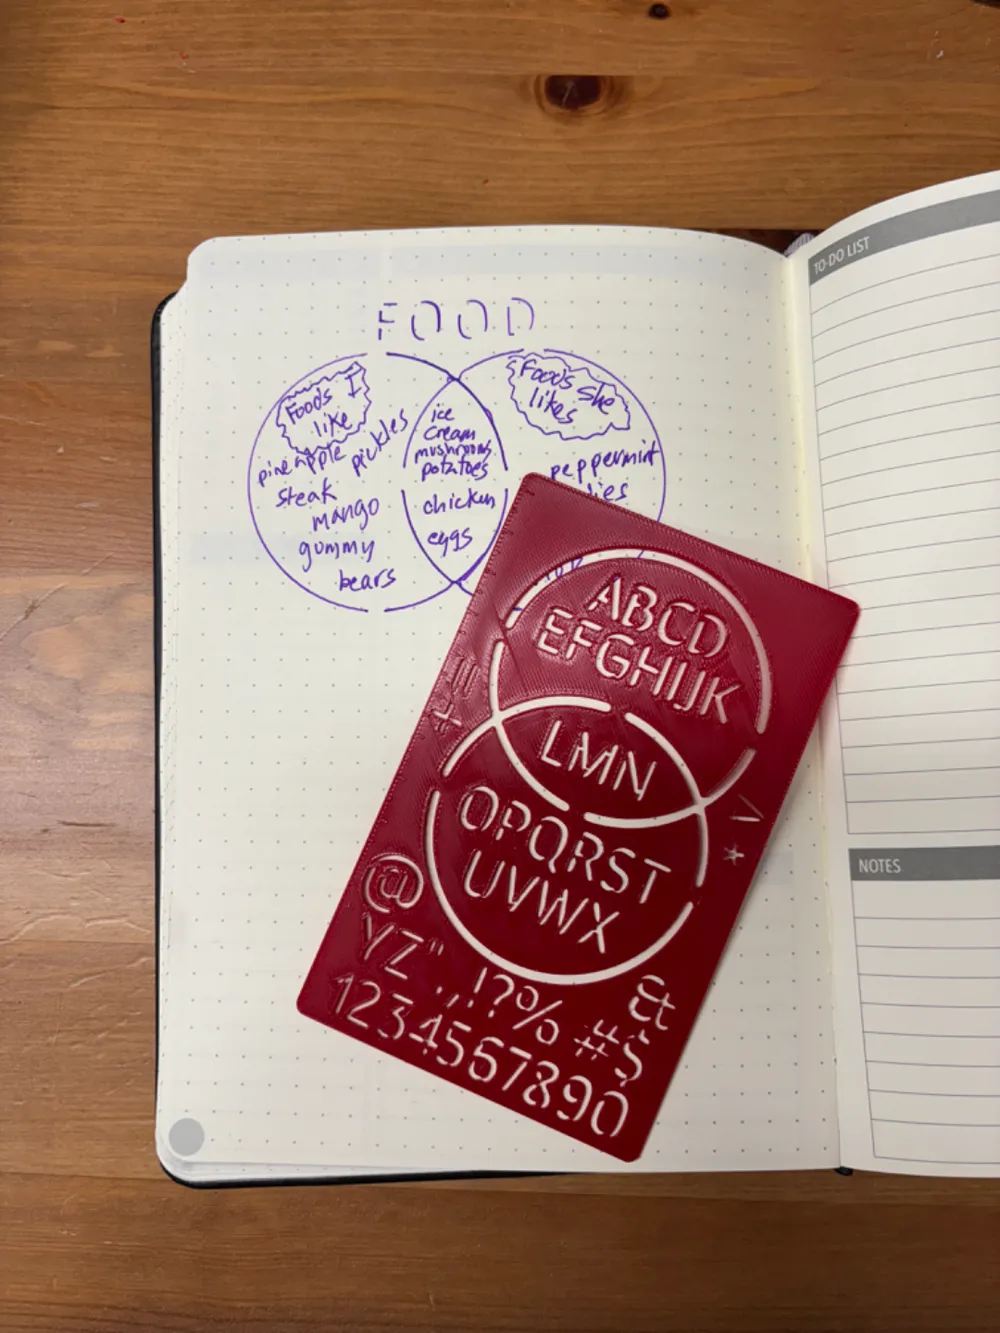 FOOD
Foods I
like
pineapple pickles
steak
mango
gummy
bears
ice
cream
mushrooms
potatoes
chicken
eggs
Foods she
likes
peppermint
TO-DO LIST
NOTES
ABCD
EFGHIJK
LMN
OPQRST
UVWX
@
YZ" .,!?% &
#$
1234567890